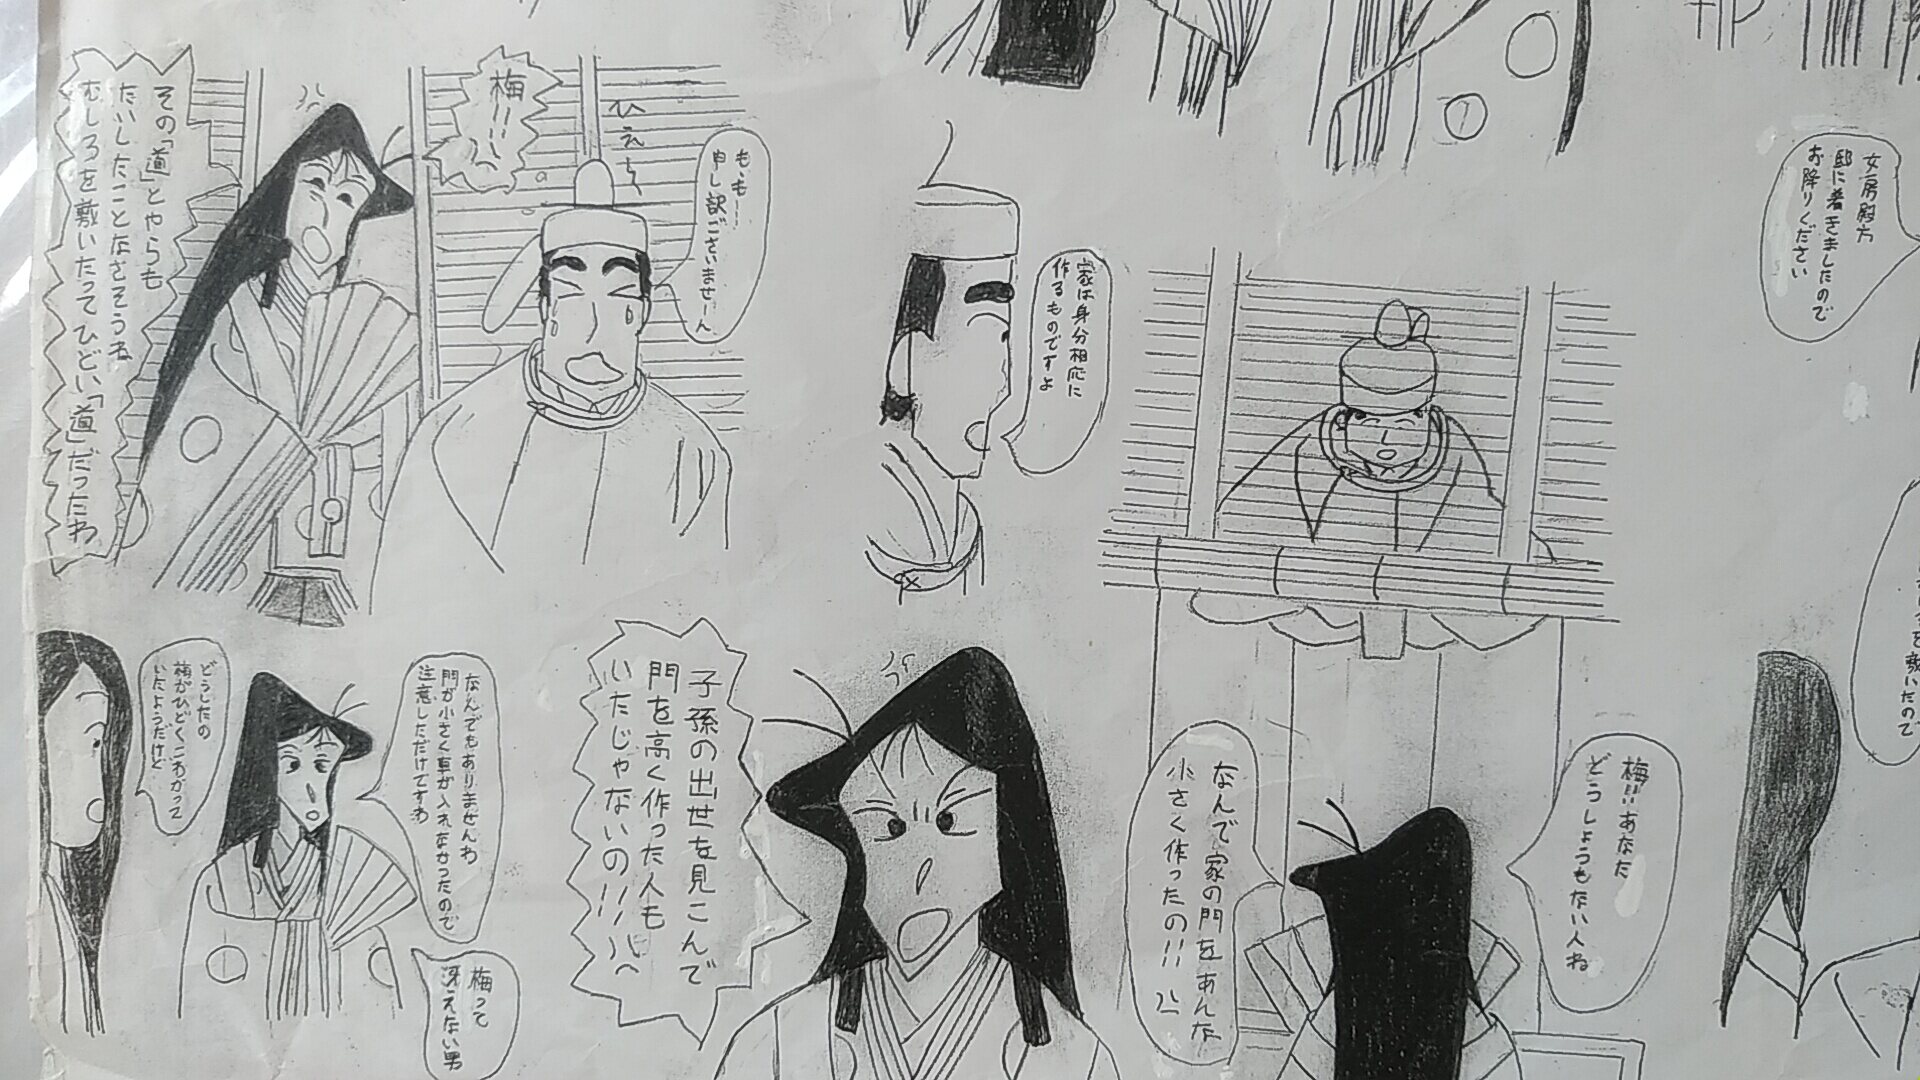 女房殿方
邸に着きましたので
お降りください
を敷いたので
梅!!あなた
どうしようもない人ね
なんで家の門をあんな
小さく作ったの!!
家は身分相応に
作るものですよ
子孫の出世を見こんで
門を高く作った人も
いたじゃないの!!
も、も…
申し訳ございませーん
ひえ〜
梅!!!
その「道」とやらも
たいしたことなさそうね
むしろを敷いたってひどい「道」だったわ
なんでもありませんわ
門が小さく車が入れなかったので
注意しただけですわ
どうしたの
梅がひどくこわがって
いたようだけど
梅って
冴えない男